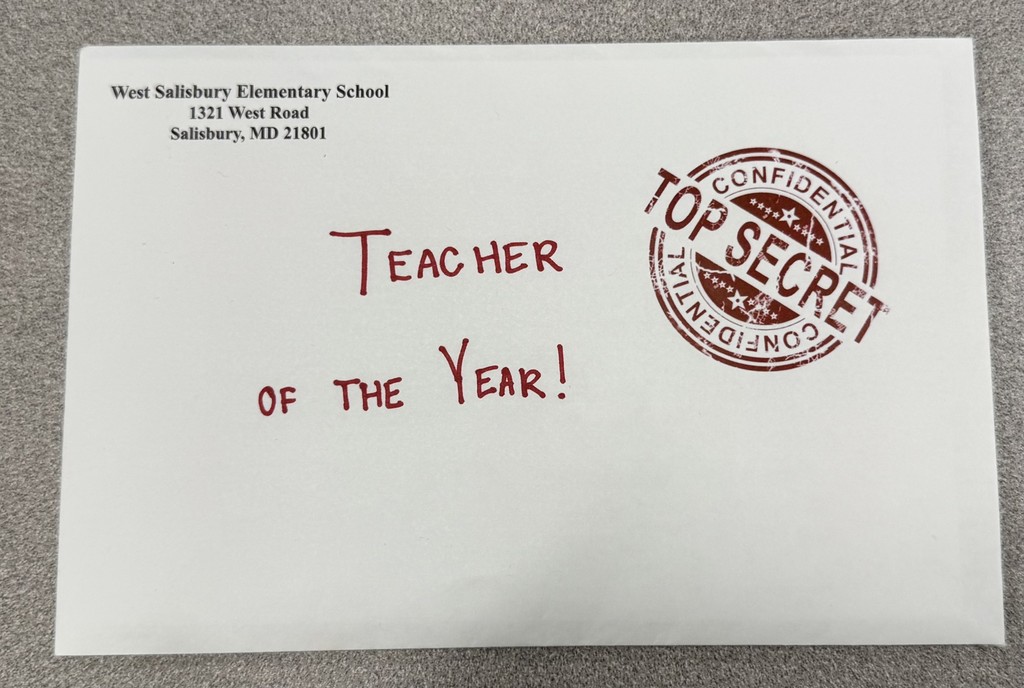 West Salisbury Elementary School
1321 West Road
Salisbury, MD 21801
TEACHER
OF THE YEAR!
CONFIDENTIAL
TOP SECRET
CONFIDENTIAL